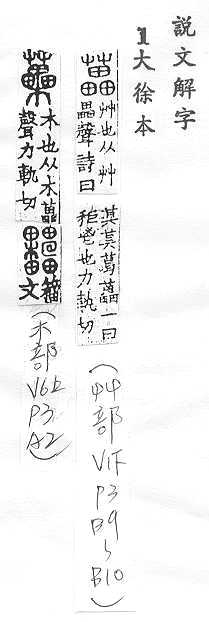 說文解字
1大徐本
藟艸也从艸畾聲詩曰莫莫葛藟一曰秬鬯也力軌切(艸部V1下P3B9~B10)
木也从木藟聲力軌切籒文(木部V6上P3A2)